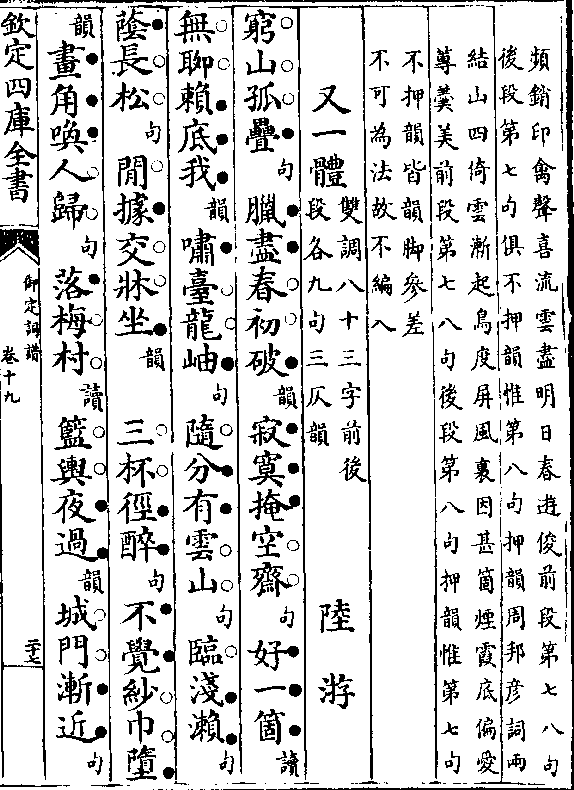 頻銷印禽聲喜流雲盡明日春遊俊前段第七八句
後段第七句俱不押韻惟第八句押韻周邦彥詞兩
結山四倚雲漸起鳥度屏風裏因甚箇煙霞底偏愛
蓴羹美前段第七八句後段第八句押韻惟第七句
不押韻皆韻脚參差
不可為法故不編入
又一體 雙調八十三字前後
段各九句三仄韻 陸游
窮山孤壘句臘盡春初破韻寂寞掩空齋句好一箇讀
無聊賴底我韻嘯臺龍岫句隨分有雲山句臨淺瀨句
蔭長松句閒據交牀坐韻 三杯徑醉句不覺紗巾墮
韻畫角喚人歸句落梅村讀籃輿夜過韻城門漸近句
欽定四庫全書
御定詞譜
卷十九
二十七